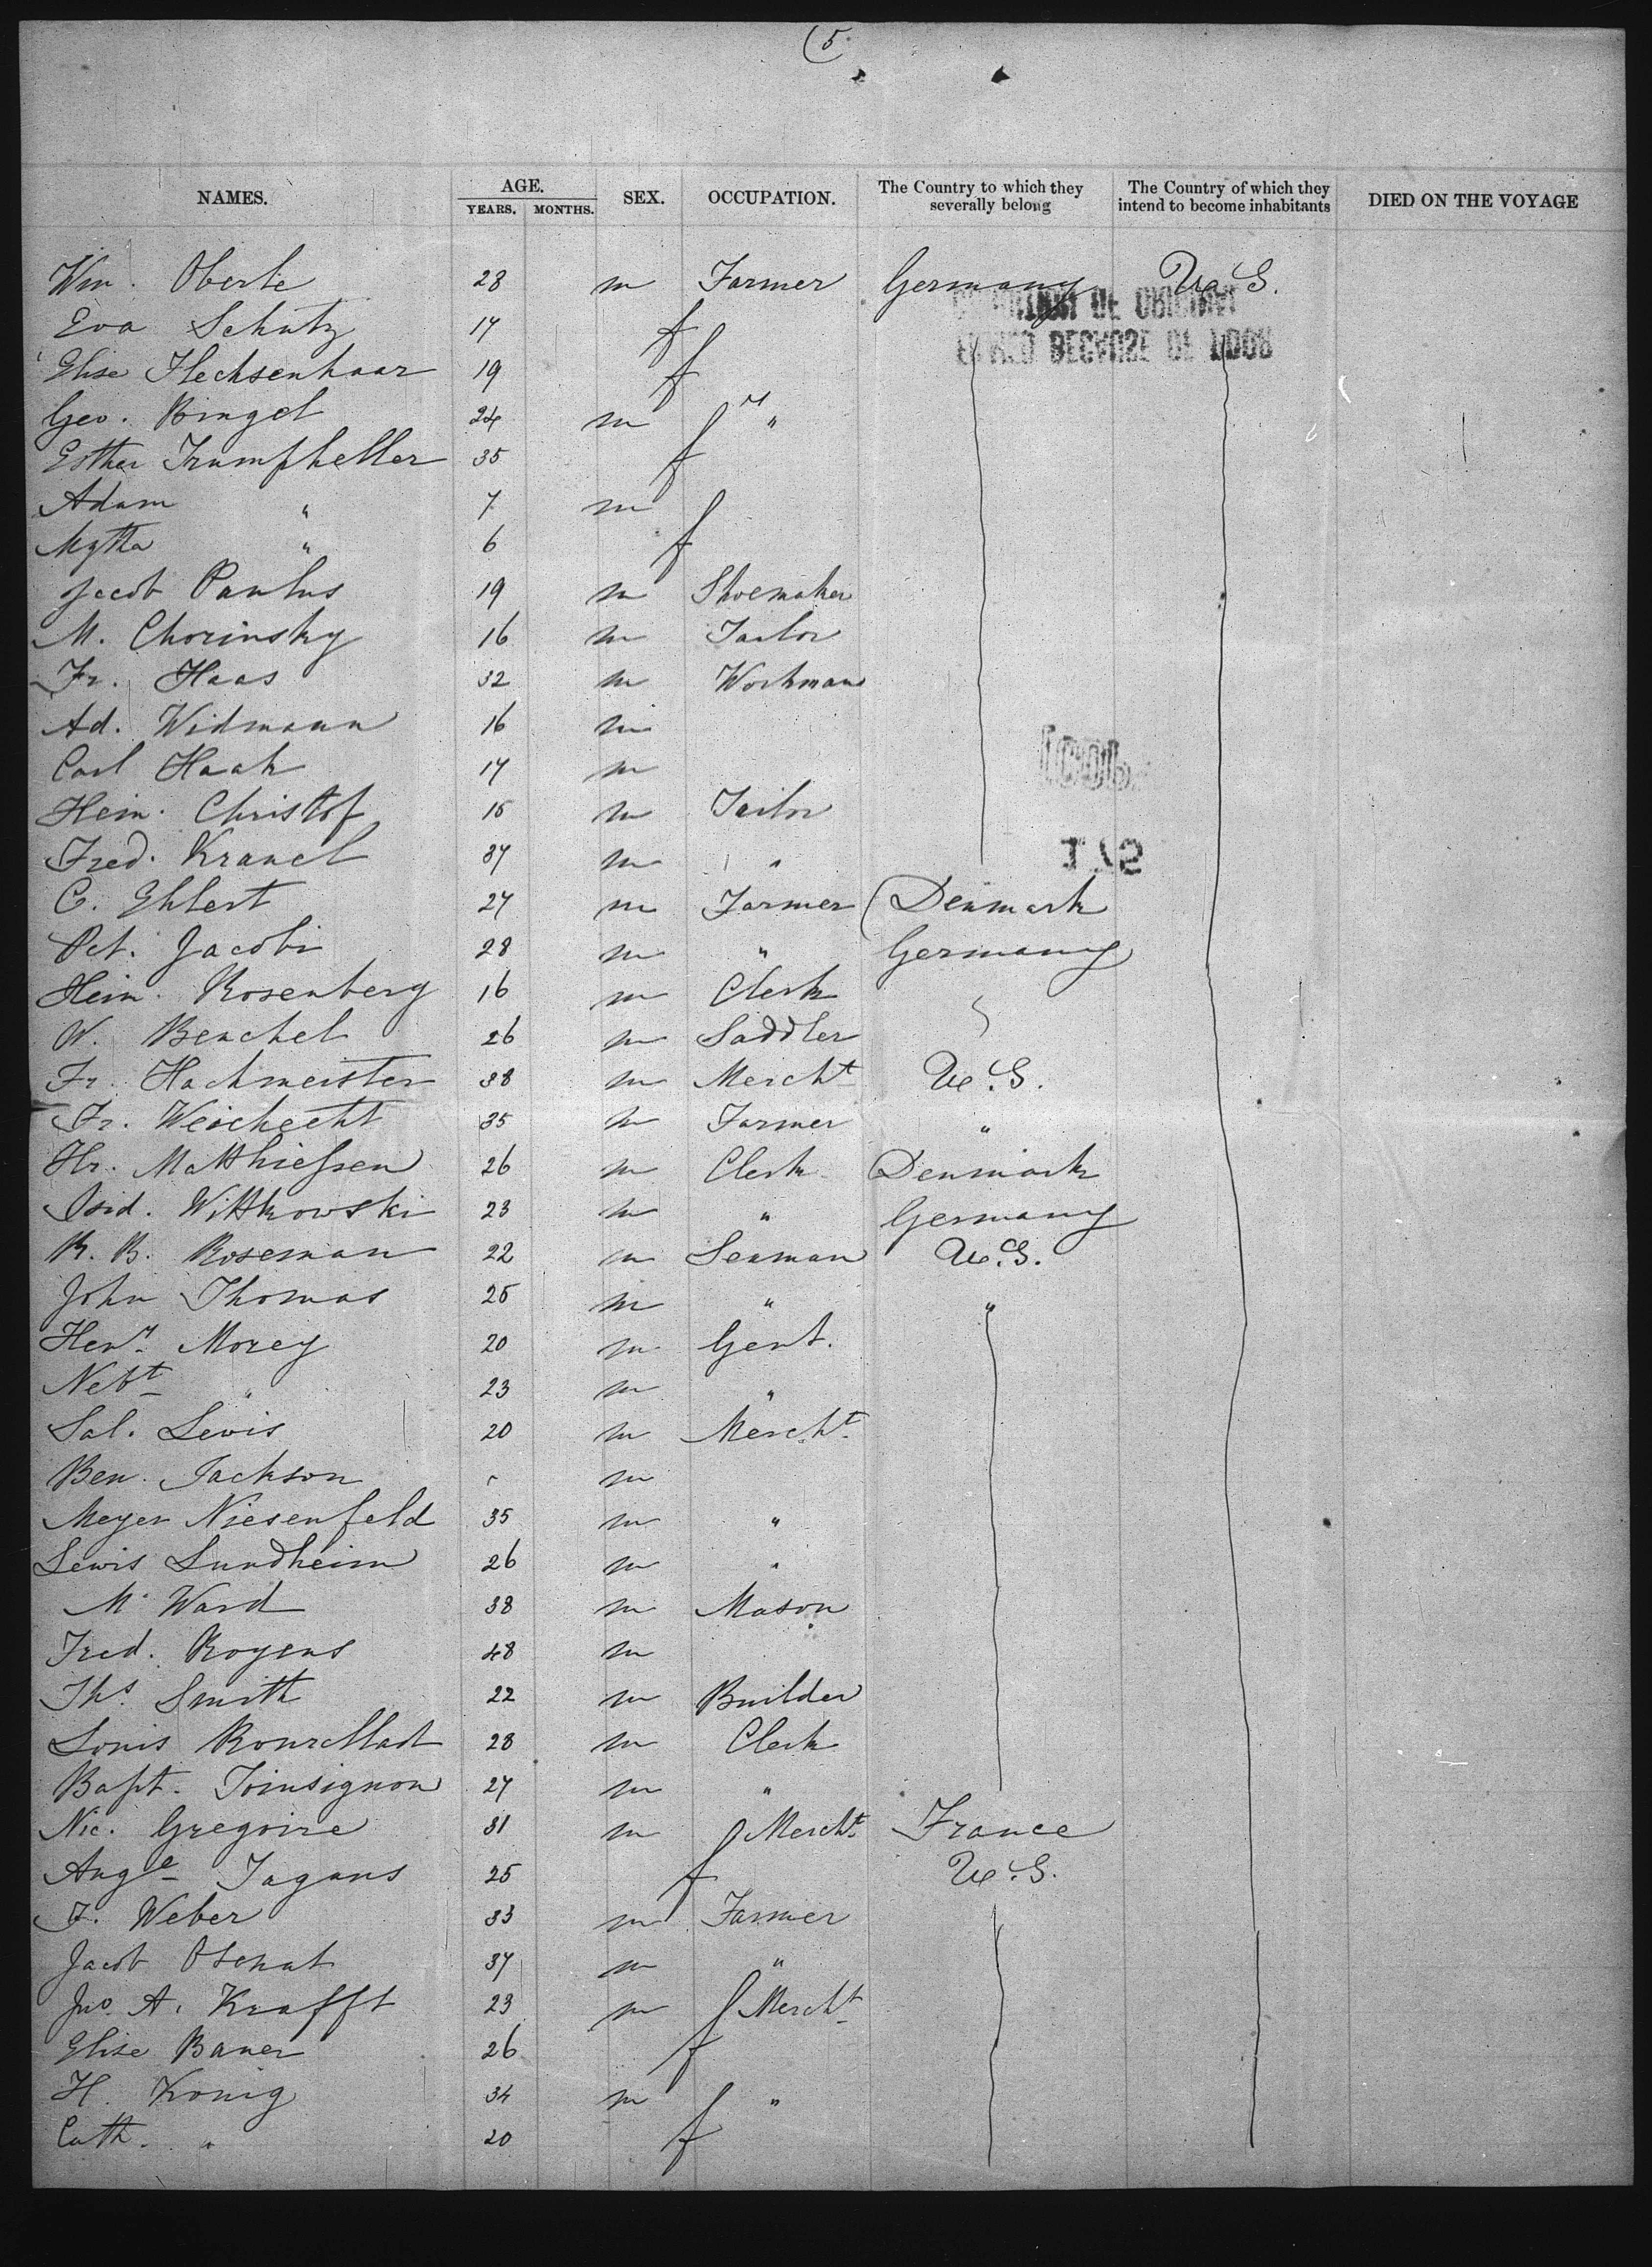 (5
NAMES. AGE. YEARS. MONTHS. SEX. OCCUPATION. The Country to which they severally belong The Country of which they intend to become inhabitants DIED ON THE VOYAGE
Wm. Oberle 28 m Farmer Germany U.S.
Eva Schutz 17 f
Elise Flechsenhaar 19 f
Geo. Bingel 24 m "
Esther Trumpheller 35 f
Adam " 7 m
" 6 f
Jacob Paulus 19 m Shoemaker
M. Chorinsky 16 m Tailor
Fr. Haas 32 m Workman
Ad. Widmann 16 m
Carl Haak 17 m
Hein. Christof 15 m Tailor
Fred. Kranel 37 m "
C. Ehlert 27 m Farmer Denmark
Pet. Jacobi 28 m " Germany
Hein. Rosenberg 16 m Clerk
W. Benchel 26 m Saddler
Fr. Hachmeister 38 m Mercht U.S.
Fr. Weichecht 35 m Farmer "
Hr. Matthiessen 26 m Clerk Denmark
Isid. Wittkowski 23 m " Germany
R. B. Roseman 22 m Seaman U.S.
John Thomas 25 m " "
Heny Morey 20 m Gent.
Nebt " 23 m "
Sal. Levis 20 m Mercht.
Ben. Jackson m
Meyer Niesenfeld 35 m "
Lewis Sundheim 26 m "
M. Ward 38 m Mason
Fred. Rogens 48 m
Ths. Smith 22 m Builder
Louis 28 m Clerk
Bapt. Toinsignon 27 m "
Nic. Gregoire 31 m Mercht. France
Auge Jagans 25 f U.S.
F. Weber 33 m Farmer
Jacob 37 m "
Jno. A. Krafft 23 m Mercht
Elise Bauer 26 f
H. Konig 34 m "
Cath. " 20 f